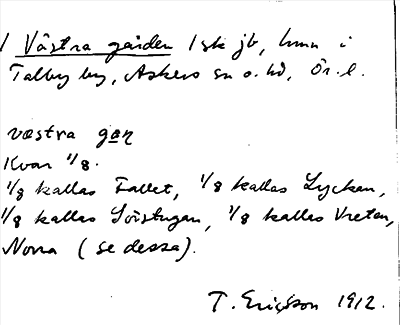 / Västra gården 1 sk jb, hmn i
Talby by, Askers sn o. hd, Ör. l.
væstra gɑɳ
Kvar 1/8.
1/8 kallas Fallet, 1/8 kallas Lyckan,
1/8 kallas Sörstugan, 1/8 kallas Vreten,
Norra (se dessa).
T. Ericsson 1912.